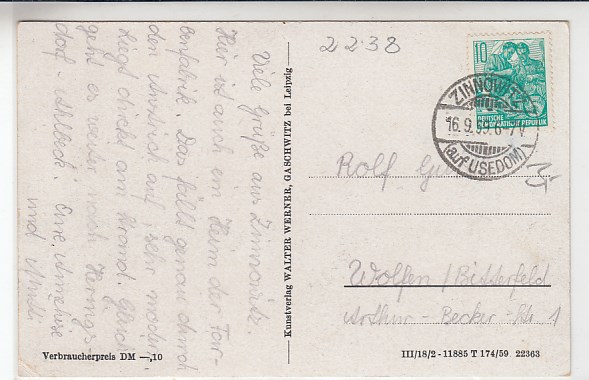 Viele Grüße aus Zinnowitz.
Hier ist auch ein Heim der Far-
benfabrik. Das fällt genau durch
den Anstrich auf, sehr modern,
liegt direkt am Strand. Gleich
geht es weiter nach Herings-
dorf - Ahlbeck. Eure
und
Verbraucherpreis DM —,10
Kunstverlag WALTER WERNER, GASCHWITZ bei Leipzig
2238
10
DEUTSCHE
DEMOKRATISCHE REPUBLIK
ZINNOWITZ
16.9.59.6-7V
(auf USEDOM)
Rolf
Wolfen / Bitterfeld
Arthur - Becker - Str. 1
III/18/2 - 11885 T 174/59 22363